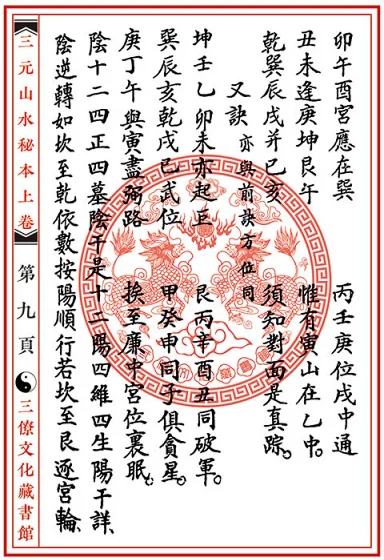 卯午酉宮應在巽 丙壬庚位戌中通
丑未逢庚坤艮午 惟有寅山在乙中。
乾巽辰戌并巳亥 須知對面是真踪。
又訣 亦與前訣方位同
坤壬乙卯未亦起巨 艮丙辛酉丑同破軍。
巽辰亥乾戌巳武位 甲癸申同子俱貪星。
庚丁午與寅盡弼路 挨至廉中宮位裏眠。
陰十二四正四墓陰干是十二陽四維四生陽干詳、
陰逆轉如坎至乾依數按陽順行若坎至艮逐宮輪、
三元山水秘本上卷 第九頁 三僚文化藏書館